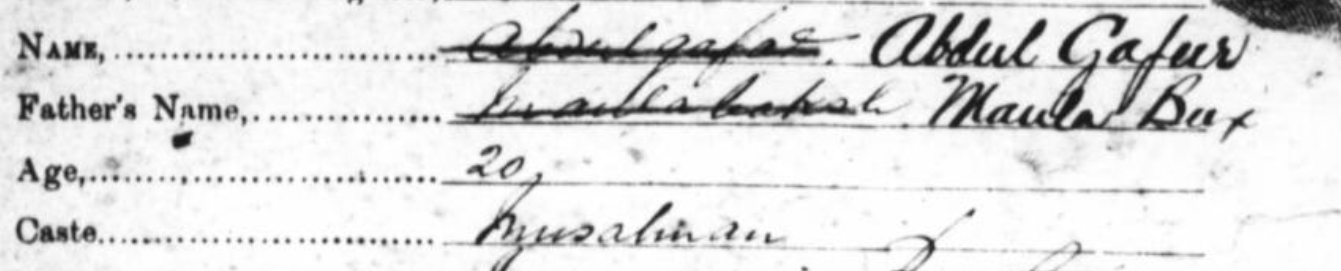 NAME, Abdulgafar. Abdul Gafur
Father's Name, Maulabaksh Maula Bux
Age, 20,
Caste Musalman